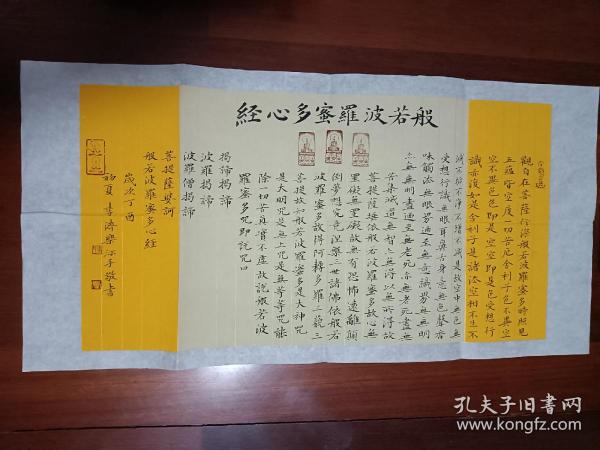 般若波羅蜜多心經
觀自在菩薩行深般若波羅蜜多時照見
五蘊皆空度一切苦厄舍利子色不異空
空不異色色即是空空即是色受想行
識亦復如是舍利子是諸法空相不生不
滅不垢不淨不增不減是故空中無色無
受想行識無眼耳鼻舌身意無色聲香
味觸法無眼界乃至無意識界無無明
亦無無明盡乃至無老死亦無老死盡無
苦集滅道無智亦無得以無所得故
菩提薩埵依般若波羅蜜多故心無
罣礙無罣礙故無有恐怖遠離顛
倒夢想究竟涅槃三世諸佛依般若
波羅蜜多故得阿耨多羅三藐三
菩提故知般若波羅蜜多是大神咒
是大明咒是無上咒是無等等咒能
除一切苦真實不虛故說般若波
羅蜜多咒即說咒曰
揭諦揭諦
波羅揭諦
波羅僧揭諦
菩提薩婆訶
般若波羅蜜多心經
歲次丁酉
初夏李濟榮沐手敬書
孔夫子旧书网
www.kongfz.com